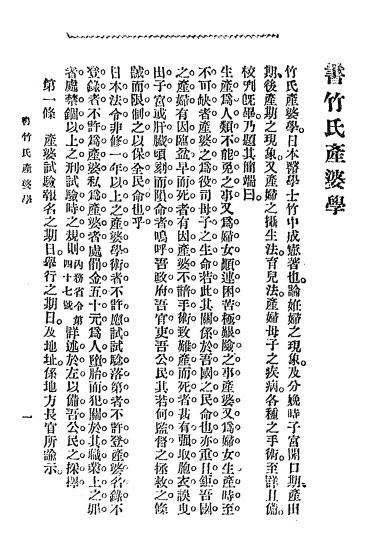 書竹氏產婆學
竹氏產婆學。日本醫學士竹中成憲著也。論姙婦之現象。及分娩時子宮開口期產出
期。後產期之現象。又產婦之攝生法。育兒法。產婦母子之疾病。各種之手術。至詳且備。
校刊旣畢。乃題其簡端曰。
生產爲人類不能免之事。又爲婦女顚連困苦極艱險之事。產婆又爲婦女生產時至
不可缺者。產婆之爲役。司母子之生命。若此其關係於吾國之民命也。亦重且鉅。吾國
之產婦。有因臨盆早而死者。有因產婆不諳手術致難產而死者。甚有强取胞衣。誤曳
出子宮或肝臟。頃刻而隕命者。嗚呼。吾政府吾官吏吾公民。其若何監督之拯救之條
誡而限制之。以保全民命也乎。
日本法令。非修一年以上之產婆學術者。不許應試。試驗落第者。不許登產婆名錄。不
登錄者。不許爲產婆。私爲產婆者。處罰金五十元。爲人墮胎而犯關於其職業上之罪
者。處禁錮以上之刑。試驗時之規則內務省令第四十七號詳述於左。以備吾公民之採擇。
第一條 產婆試驗報名之期日。舉行之期日。及地址。係地方長官所諭示。
書竹氏產婆學 一